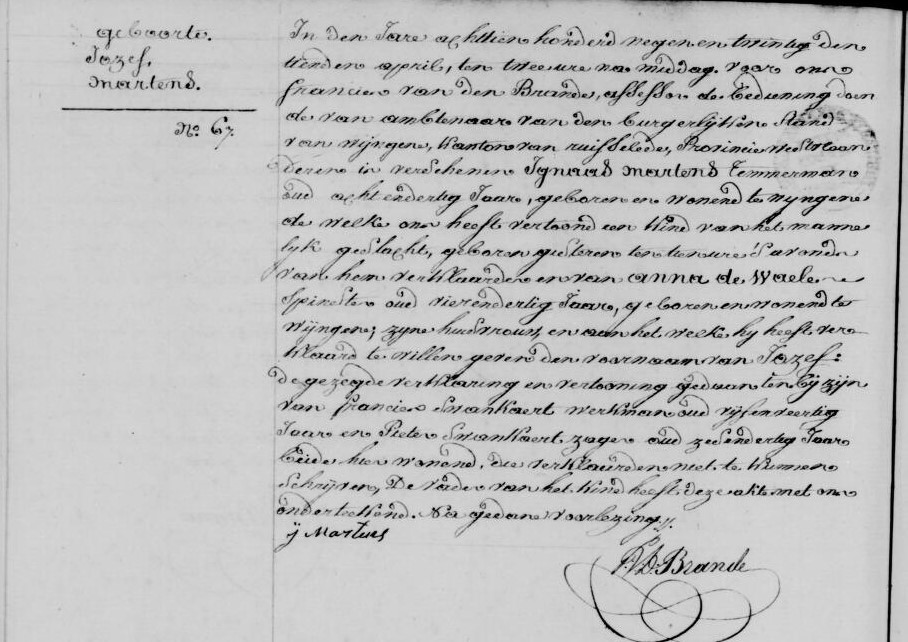 geboorte.
Jozef.
Martens.
No. 67
In den Jare achttien honderd negen en twintig den
tienden april, ten twee ure na middag. voor ons
francies van den Brande, assessor de Bediening doen
de van ambtenaar van den burgerlyken Stand
van wijngene, kanton van ruisselede, Provincie westvlaan
deren is verschenen Ignaas Martens Temmerman
oud acht endertig Jaar, geboren en wonend te wyngene
de welke ons heeft vertoond een kind van het manne
lyk geslacht, geboren gisteren ten tien ure 's avonds
van hem verklaarder en van anna de Waele
Spinster oud vierendertig Jaar, geboren en wonend te
Wijngene; zyne huisvrouw, en aan het welke hy heeft ver
klaard te willen geven den voornaam van Jozef:
de gezegde verklaring en vertooning gedaan ten bij zijn
van francies Swankaert werkman oud vijfenveertig
Jaar en Pieter Swankaert, zager oud zesendertig Jaar
beide hier wonend, die verklaarden niet te kunnen
Schrijven, De vader van het kind heeft deze akte met ons
onderteekend. Na gedane voorlezing.
y Martens
V.D. Brande